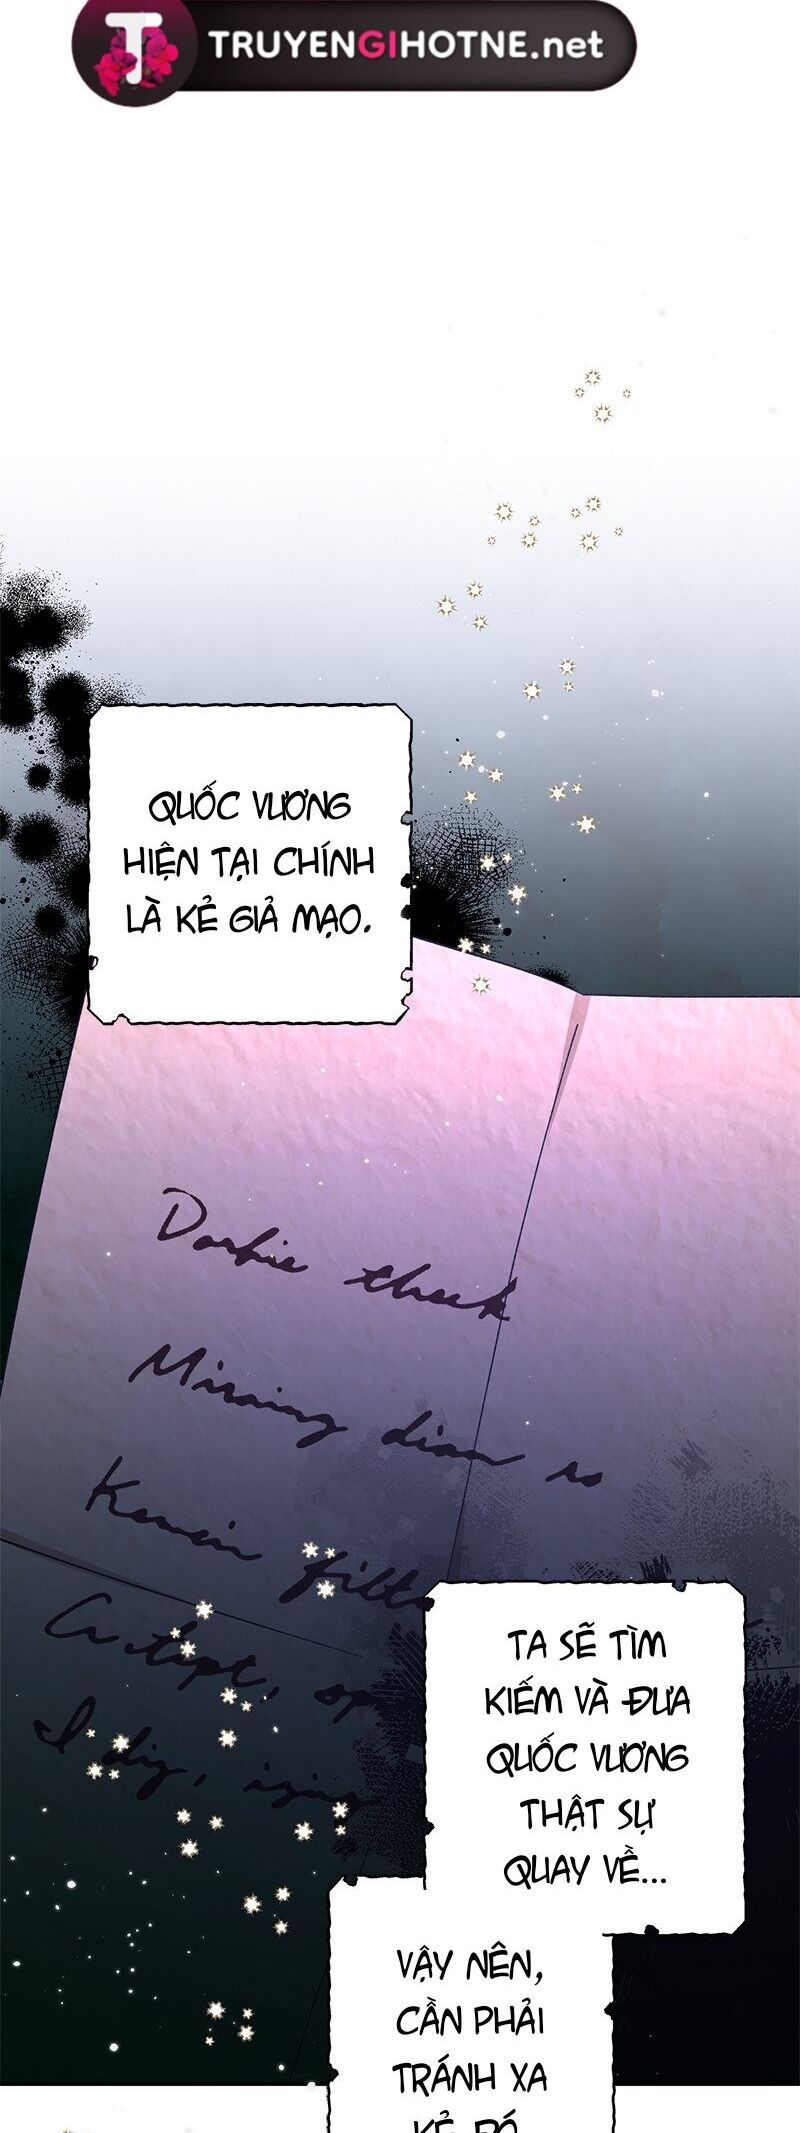 TRUYENGIHOTNE.net
QUỐC VƯƠNG
HIỆN TẠI CHÍNH
LÀ KẺ GIẢ MẠO.
Missing dian so
I dig,
TA SẼ TÌM
KIẾM VÀ ĐƯA
QUỐC VƯƠNG
THẬT SỰ
QUAY VỀ...
VẬY NÊN,
CẦN PHẢI
TRÁNH XA
KẺ ĐÓ